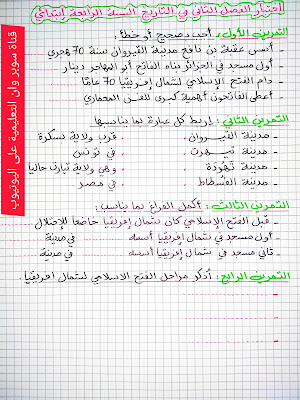 اختبار الفصل الثاني في التاريخ السنة الرابعة إبتدائي
التمرين الأول: أجب بصحيح أو خطأ:
ـ أسس عقبة بن نافع مدينة القيروان سنة 70 هجري
ـ أول مسجد في الجزائر بناه الفاتح أبو المهاجر دينار
ـ دام الفتح الإسلامي لشمال إفريقيا 70 عامًا
ـ أعطى الفاتحون أهمية كبرى للفن المعماري
التمرين الثاني: إربط كل عبارة بما يناسبها
ـ مدينة القيروان . . قرب ولاية بسكرة
ـ مدينة تيهرت . . في تونس
ـ مدينة تهودة . . وهي ولاية تيارت حاليا
ـ مدينة الفسطاط . . في مصر
التمرين الثالث: أكمل الفراغ بما يناسب:
ـ قبل الفتح الإسلامي كان شمال إفريقيا خاضعا للإحتلال
ـ أول مسجد في شمال إفريقيا أسسه في مدينة
ـ ثاني مسجد في شمال إفريقيا أسسه في مدينة
التمرين الرابع: أذكر مراحل الفتح الاسلامي لشمال افريقيا.
قناة سوبر وان التعليمية على اليوتيوب